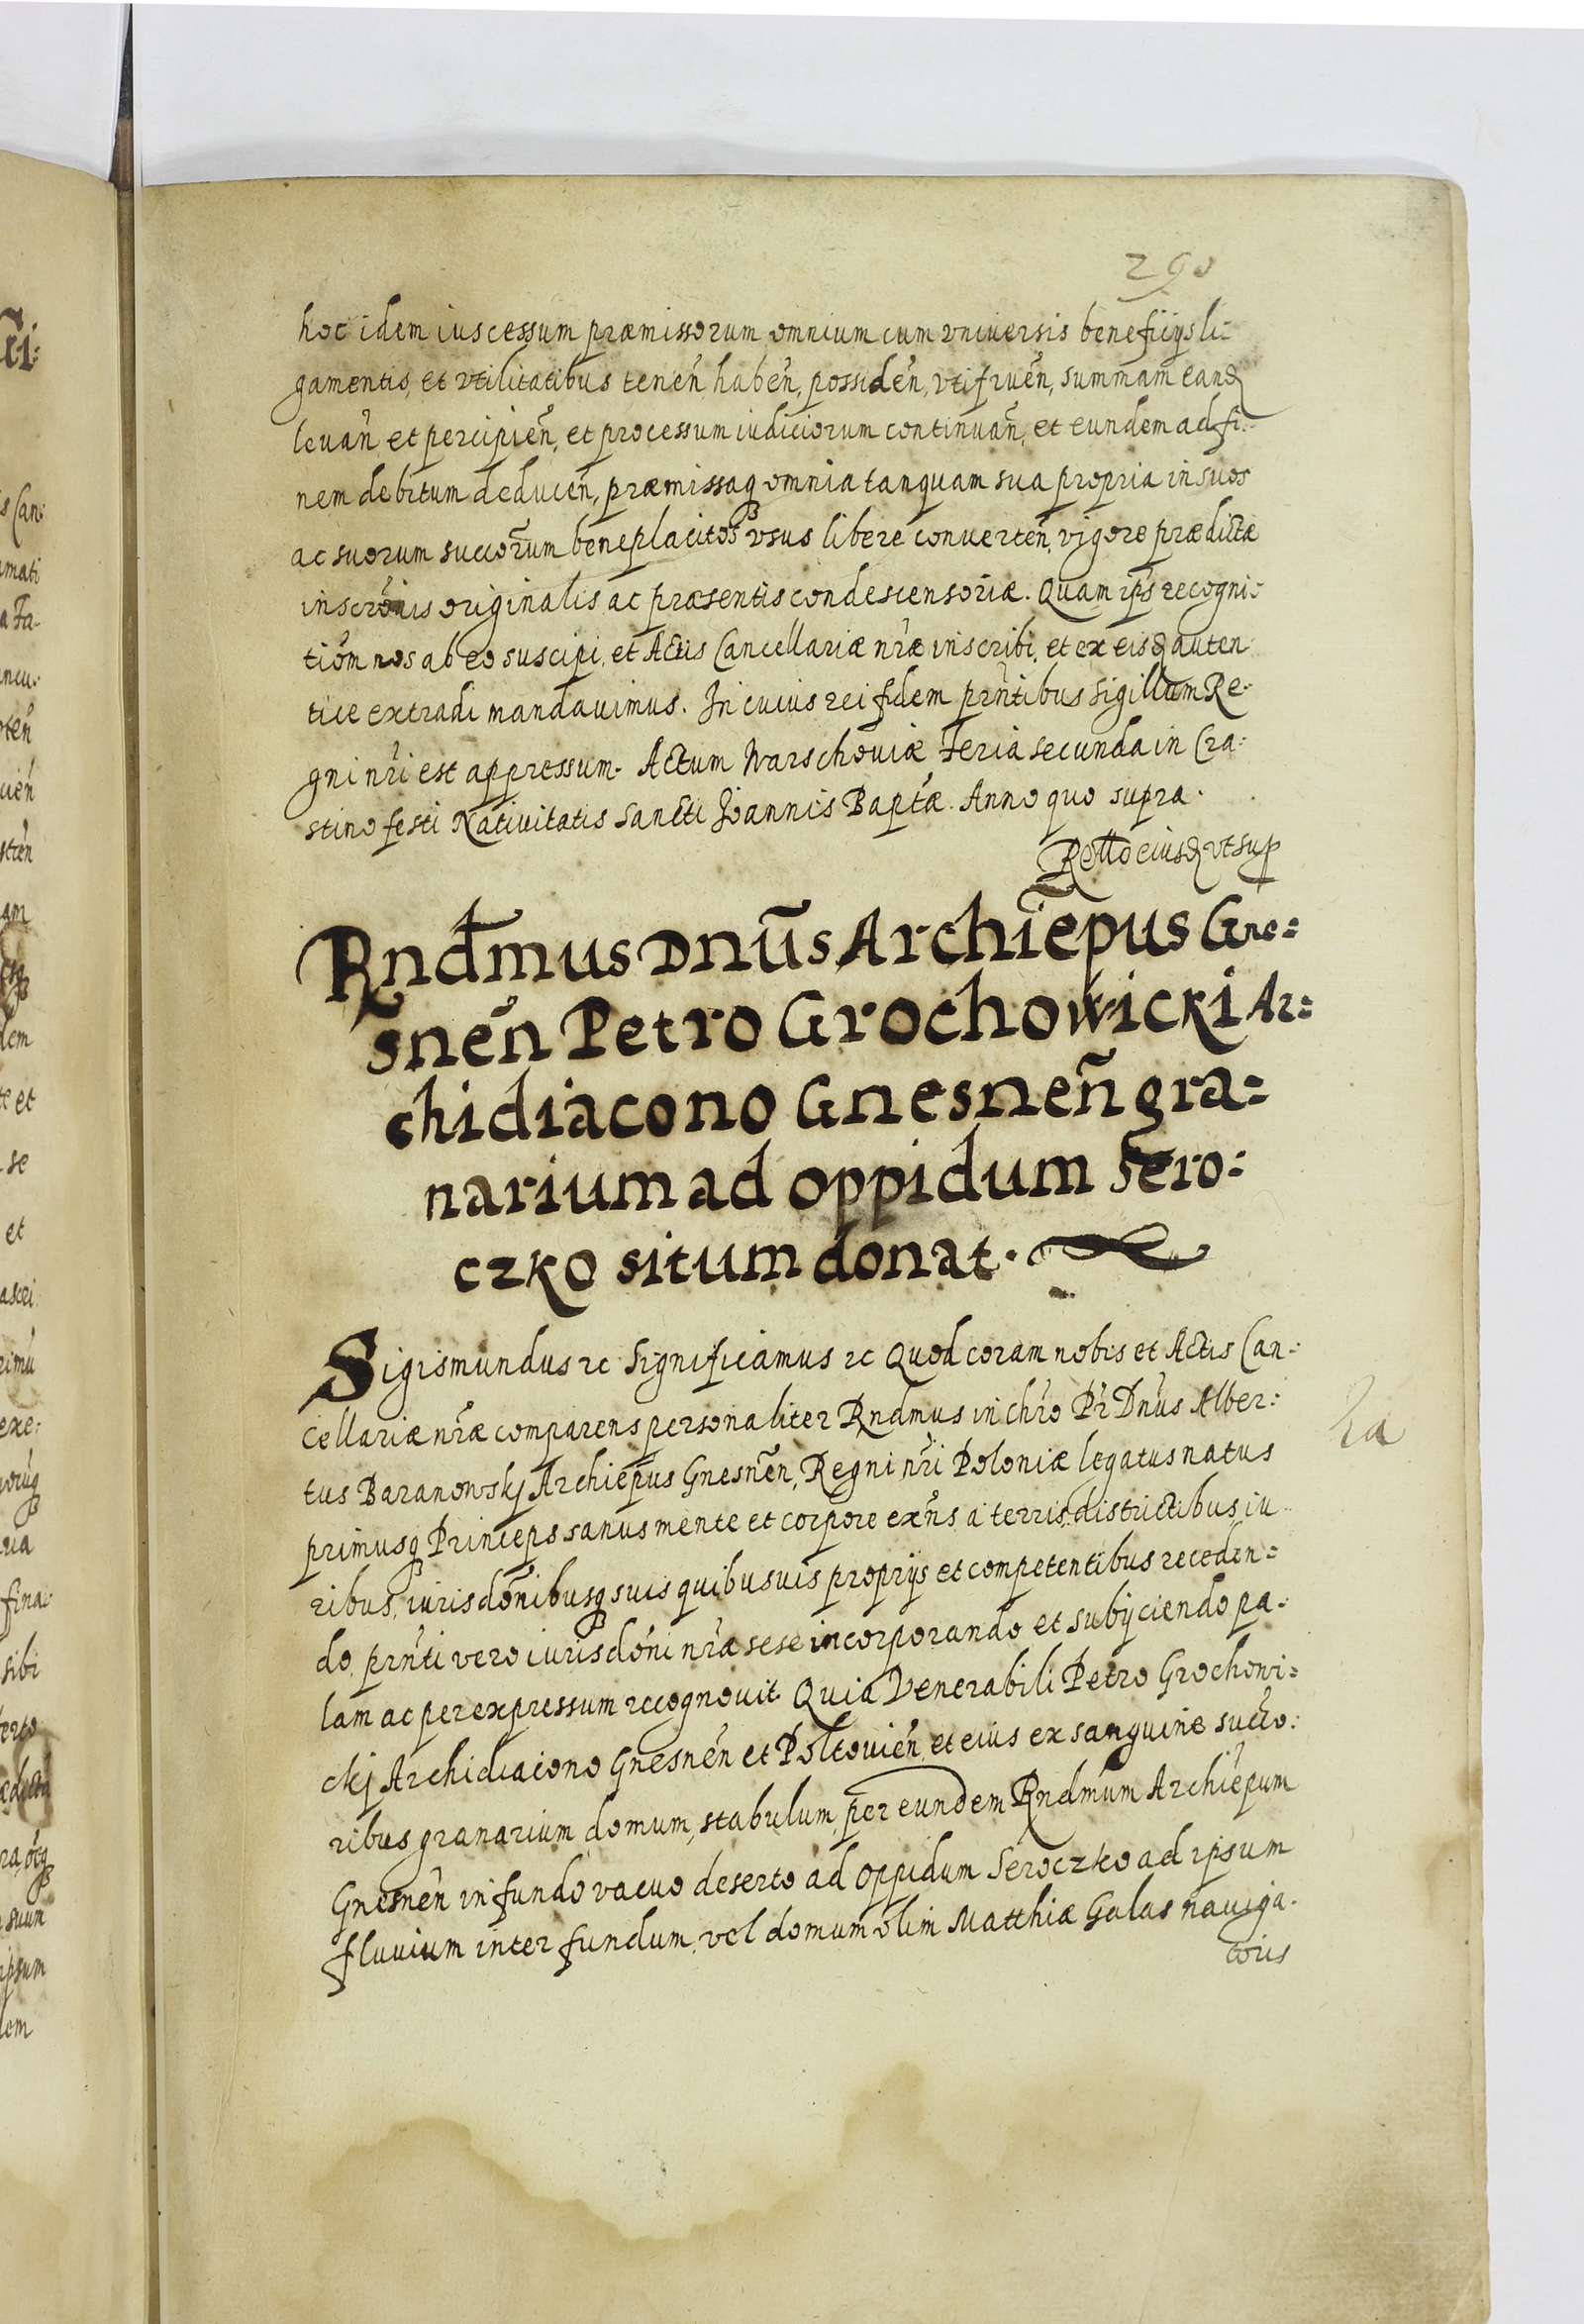 290
hoc idem ius cessum præmissorum omnium cum vniuersis beneficijs li-
gamentis, et vtilitatibus tenen̄ haben̄, possiden̄, vtifruen̄, summam eand
leuan̄ et percipien̄, et processum iudiciorum continuan̄, et eundem ad fi-
nem debitum deducen̄, præmissaq omnia tanquam sua propria in suos
ac suorum succorum beneplacitos vsus libere conuerten̄, vigore prædictæ
inscronis originalis ac præsentis condescensoriæ. Quam ips recogni-
tiom nos ab eo suscipi, et Actis Cancellariæ nræ inscribi, et ex eisd auten
tice extradi mandauimus. In cuius rei fidem prntibus sigillum Re-
gni nri est appressum. Actum Warschouiæ Feria secunda in Cra-
stino festi Natiuitatis Sancti Joannis Baptæ. Anno quo supra.
Rettō eiusd vt sup
Rndmus Dnūs Archiēpus Gne=
snēn Petro Grochowicki Ar=
chidiacono Gnesnen̄ gra=
narium ad oppidum Sero=
czko situm donat.
Sigismundus rc Significamus rc Quod coram nobis et Actis Can-
cellariæ nræ comparens personaliter Rndmus in chro Pr Dnus Alber-
tus Baranowskj Archiepus Gnesnen̄, Regni nri Poloniæ legatus natus
primusq Princeps sanus mente et corpore exns a terris districtibus iu-
ribus, iurisdonibusq suis quibusuis proprijs et competentibus receden=
do, prnti vero iurisdoni nræ sese incorporando et subijciendo pa-
lam ac per expressum recognouit. Quia Venerabili Petro Grochowi=
ckj Archidiacono Gnesnen̄ et Poltouien̄, et eius ex sanguine succo-
ribus granarium domum, stabulum, per eundem Rndmum Archiepum
Gnesnen̄ in fundo vacuo deserto ad oppidum Seroczko ad ipsum
fluuium inter fundum, vel domum olim Matthiæ Galas nauiga-
toris